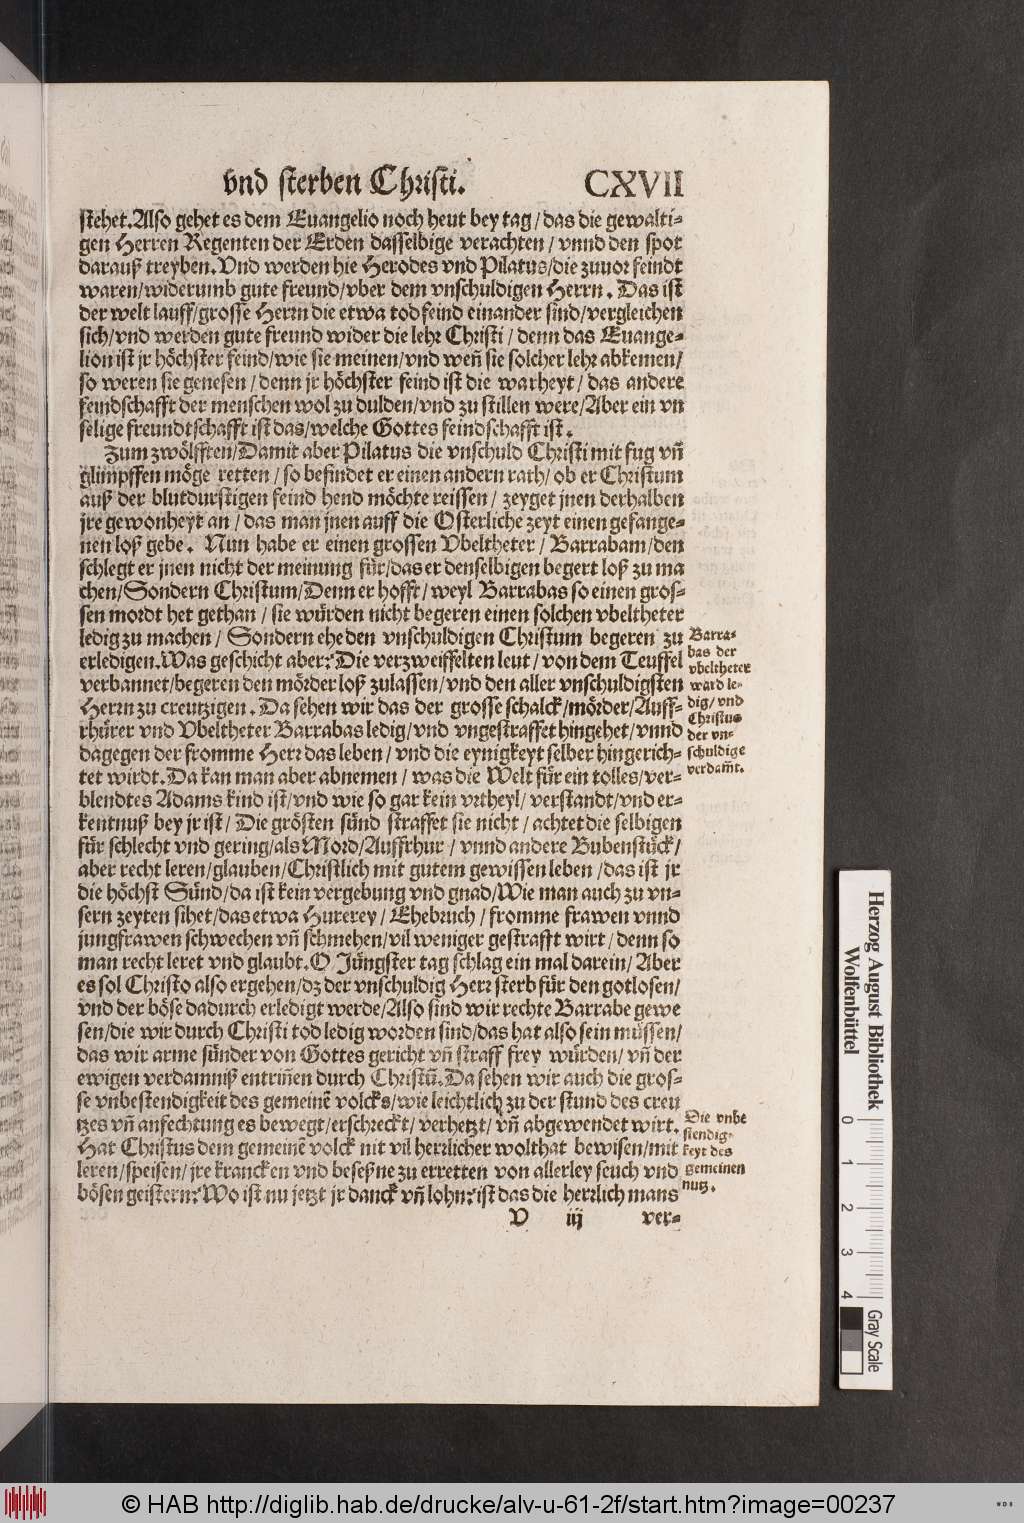 vnd sterben Christi. CXVII
stehet. Also gehet es dem Euangelio noch heut bey tag / das die gewalti-
gen Herren Regenten der Erden dasselbige verachten / vnnd den spot
darauß treyben. Vnd werden hie Herodes vnd Pilatus/die zuuor feindt
waren/widerumb gute freund/vber dem vnschuldigen Herrn. Das ist
der welt lauff/grosse Herrn die etwa tod feind einander sind/vergleichen
sich/vnd werden gute freund wider die lehr Christi / denn das Euange-
lion ist jr höchster feind/wie sie meinen/vnd weñ sie solcher lehr abkemen/
so weren sie genesen / denn jr höchster feind ist die warheyt / das andere
feindschafft der menschen wol zu dulden/vnd zu stillen were/Aber ein vn
selige freundtschafft ist das/welche Gottes feindschafft ist.
Zum zwölfften/Damit aber Pilatus die vnschuld Christi mit fug vñ
glimpffen möge retten / so befindet er einen andern rath/ ob er Christum
auß der blutdurstigen feind hend möchte reissen / zeyget jnen derhalben
jre gewonheyt an / das man jnen auff die Osterliche zeyt einen gefange-
nen loß gebe. Nun habe er einen grossen Vbeltheter / Barrabam/den
schlegt er jnen nicht der meinung für/das er denselbigen begert loß zu ma
chen/Sondern Christum/Denn er hofft/ weyl Barrabas so einen gros-
sen mordt het gethan / sie würden nicht begeren einen solchen vbeltheter
ledig zu machen / Sondern ehe den vnschuldigen Christum begeren zu
erledigen. Was geschicht aber? Die verzweiffelten leut / von dem Teuffel
verbannet/begeren den mörder loß zulassen/vnd den aller vnschuldigsten
Herrn zu creutzigen. Da sehen wir das der grosse schalck/mörder/Auff-
rhürer vnd Vbeltheter Barrabas ledig/vnd vngestraffet hingehet/vnnd
dagegen der fromme Herr das leben / vnd die eynigkeyt selber hingerich-
tet wirdt. Da kan man aber abnemen / was die Welt für ein tolles/ver-
blendtes Adams kind ist/vnd wie so gar kein vrtheyl/ verstandt/vnd er-
kentnuß bey jr ist / Die grösten sünd straffet sie nicht / achtet die selbigen
für schlecht vnd gering/als Mord/Auffrhur / vnnd andere Bubenstück/
aber recht leren/glauben/Christlich mit gutem gewissen leben / das ist jr
die höchst Sünd/da ist kein vergebung vnd gnad/Wie man auch zu vn-
sern zeyten sihet/das etwa Hurerey / Ehebruch / fromme frawen vnnd
jungfrawen schwechen vñ schmehen/vil weniger gestrafft wirt / denn so
man recht leret vnd glaubt. O Jüngster tag schlag ein mal darein/ Aber
es sol Christo also ergehen/dz der vnschuldig Herr sterb für den gotlosen/
vnd der böse dadurch erledigt werde/Also sind wir rechte Barrabe gewe
sen/die wir durch Christi tod ledig worden sind/das hat also sein müssen/
das wir arme sünder von Gottes gericht vñ straff frey würden/ vñ der
ewigen verdamniß entriñen durch Christũ. Da sehen wir auch die gros-
se vnbestendigkeit des gemeinẽ volcks/wie leichtlich zu der stund des creu
tzes vñ anfechtung es bewegt/erschreckt/ verhetzt/ vñ abgewendet wirt.
Hat Christus dem gemeinẽ volck nit vil herrlicher wolthat bewisen/mit
leren/speisen/ jre krancken vnd beseßne zu erretten von allerley seuch vnd
bösen geistern? Wo ist nu jetzt jr danck vñ lohn? ist das die herrlich mans
V iij ver-
Barra-
bas der
vbeltheter
ward le-
dig/ vnd
Christus
der vn-
schuldige
verdam̃t.
Die vnbe
stendig-
keyt des
gemeinen
nutz.
Herzog August Bibliothek
Wolfenbüttel
0 1 2 3 4
Gray Scale
© HAB http://diglib.hab.de/drucke/alv-u-61-2f/start.htm?image=00237